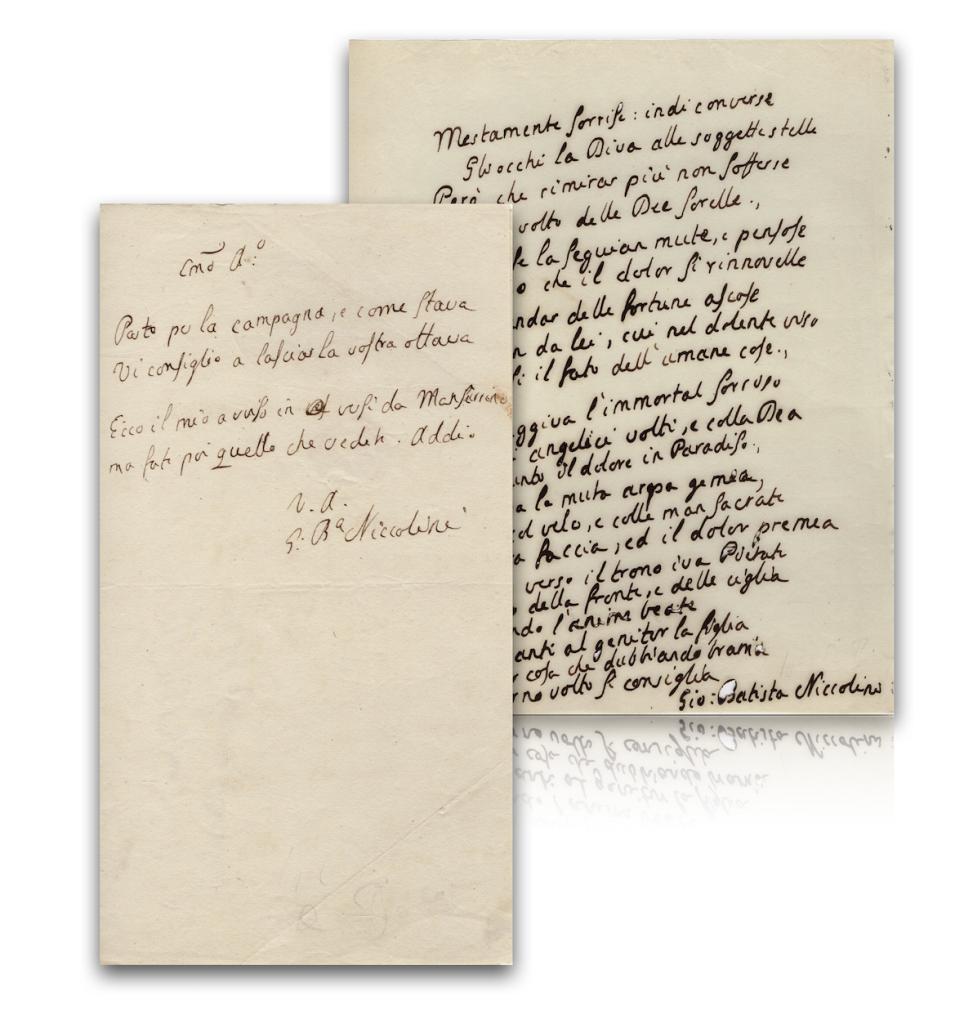 Cmo A:o
Parto per la campagna, e come stava
Vi consiglio a lasciar la vostra ottava
Ecco il mio avviso in versi da
ma fate poi quello che vedete. Addio
V. A.
G: Ba Niccolini
Mestamente sorrise: indi converse
Gli occhi la Diva alle soggette stelle
Però che rimirar più non sofferse
volto delle Dee sorelle.,
la seguian mute, e pensose
o che il dolor si rinnovelle
ndar delle fortune ascose
n da lei, cui nel dolente viso
si il fato dell'umane cose.,
ggiva l'immortal sorriso
angelici volti, e colla Dea
anto il dolore in Paradiso.,
a la muta arpa gemea,
el velo, e colle man sacrate
a faccia, ed il dolor premea
verso il trono iva Pietate
o della fronte, e delle ciglia
ndo l'anime beate
anti al genitor la figlia
r cosa che dubbiando brama
rno volto si consiglia
Gio: Batista Niccolini